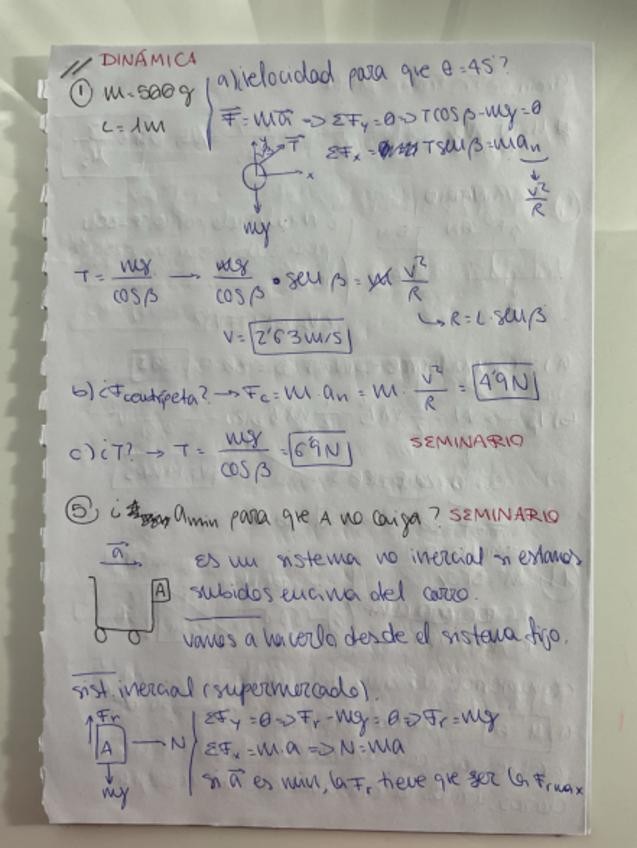 DINÁMICA
① m=500g
L=1m
a) velocidad para que θ=45°?
F=ma => ΣFy=0 => Tcosβ-mg=0
ΣFx = Tsenβ=man
v²/R
y T
β
x
mg
T = mg/cosβ → mg/cosβ · senβ = m v²/R
↳ R=L·senβ
v= 2'63m/s
b) ¿Fcentrípeta? → Fc=m·an=m·v²/R = 4'9N
c) ¿T? → T = mg/cosβ = 6'9N
SEMINARIO
⑤ ¿ amin para que A no caiga? SEMINARIO
a
A
es un sistema no inercial si estamos
subidos encima del carro.
vamos a hacerlo desde el sistema fijo.
sist. inercial (supermercado).
Fr
A → N
mg
ΣFy=0 => Fr-mg=0 => Fr=mg
ΣFx=m·a => N=ma
si a es min, la Fr tiene que ser la Frmax